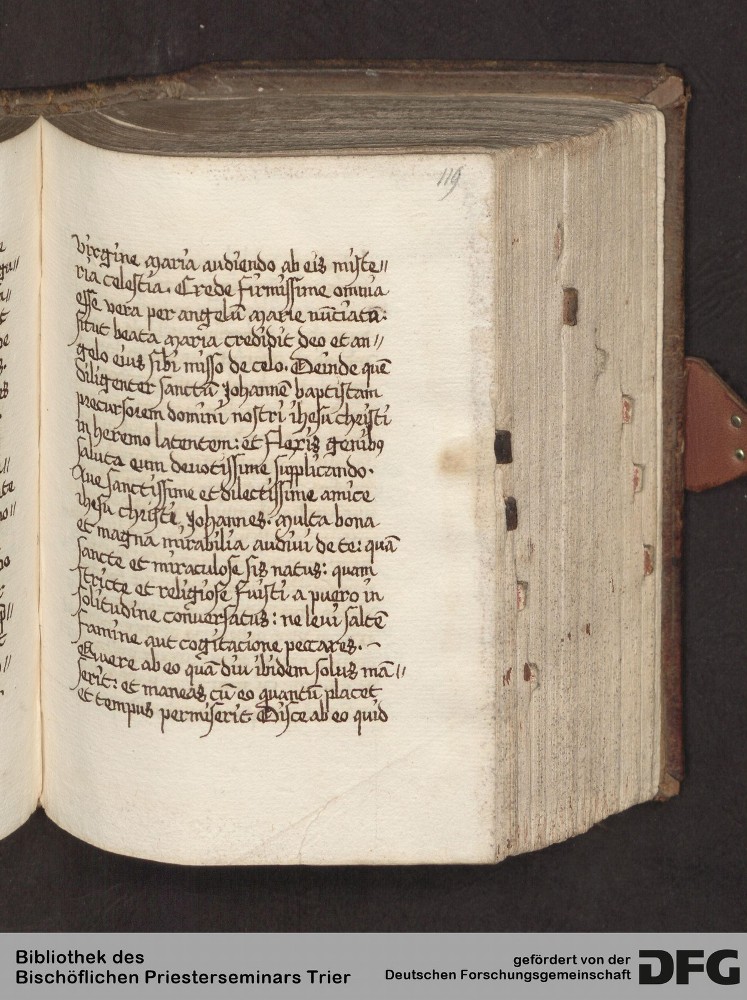 119
virgine maria audiendo ab eis miste//
ria celestia. Crede firmissime omnia
esse vera per angelū marie nūciata:
sicut beata maria credidit deo et an//
gelo eius sibi misso de celo. Deinde quē
diligenter sanctū Johannē baptistam
precursorem domini nostri ihesu christi
in heremo latentem: et flexis genibꝰ
saluta eum deuotissime supplicando.
Aue sanctissime et dilectissime amice
ihesu christi, Johannes. multa bona
et magna mirabilia audiui de te: quā
sancte et miraculose sis natus: quam
stricte et religiose fuisti a puero in
solitudine conuersatus: ne leui saltē
famine aut cogitacione peccares.
Quere ab eo quā diu ibidem solus mā//
serit: et maneas cū eo quantū placet
et tempus permiserit Disce ab eo quid
Bibliothek des
Bischöflichen Priesterseminars Trier
gefördert von der
Deutschen Forschungsgemeinschaft
DFG